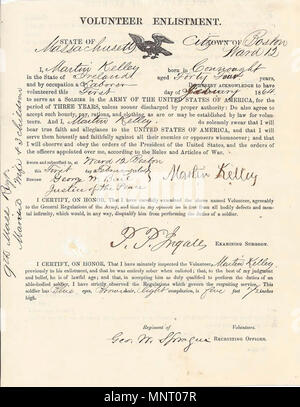 VOLUNTEER ENLISTMENT.
STATE OF City TOWN OF Boston
Massachusetts Ward 12
I, Martin Kelley born in Connought
in the State of Ireland aged Forty Four years,
and by occupation a Laborer DO HEREBY ACKNOWLEDGE to have
volunteered this First day of February 1864
to serve as a Soldier in the ARMY OF THE UNITED STATES OF AMERICA, for the
period of THREE YEARS, unless sooner discharged by proper authority: Do also agree to
accept such bounty, pay, rations, and clothing, as are or may be established by law for volun-
teers. And I, Martin Kelley do solemnly swear that I will
bear true faith and allegiance to the UNITED STATES OF AMERICA, and that I will
serve them honestly and faithfully against all their enemies or opposers whomsoever; and that I will
observe and obey the orders of the President of the United States, and the orders of
the officers appointed over me, according to the Rules and Articles of War.
Sworn and subscribed to, at Ward 12 Boston
this First day of February 1864
BEFORE George W.
Justice of the Peace
Martin Kelley
I CERTIFY, ON HONOR, That I have carefully examined the above named Volunteer, agreeably
to the General Regulations of the Army, and that in my opinion he is free from all bodily defects and men-
tal infirmity, which would, in any way, disqualify him from performing the duties of a soldier.
EXAMINING SURGEON.
I CERTIFY, ON HONOR, That I have minutely inspected the Volunteer, Martin Kelley
previously to his enlistment, and that he was entirely sober when enlisted; that, to the best of my judgment
and belief, he is of lawful age; and that, in accepting him as duly qualified to perform the duties of an
able-bodied soldier, I have strictly observed the Regulations which govern the recruiting service. This
soldier has Blue eyes, Brown hair, Light complexion, is five feet 7 inches
high.
Regiment of Volunteers.
Geo. W. RECRUITING OFFICER.
Married Wife & children
alamy
MNT07R